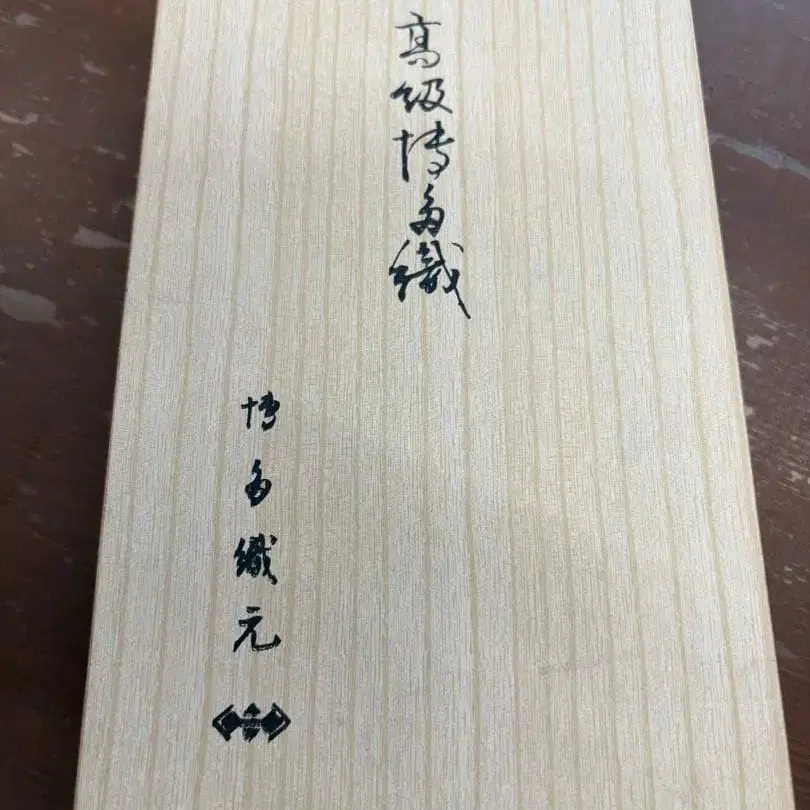 高級博多織
博多織元